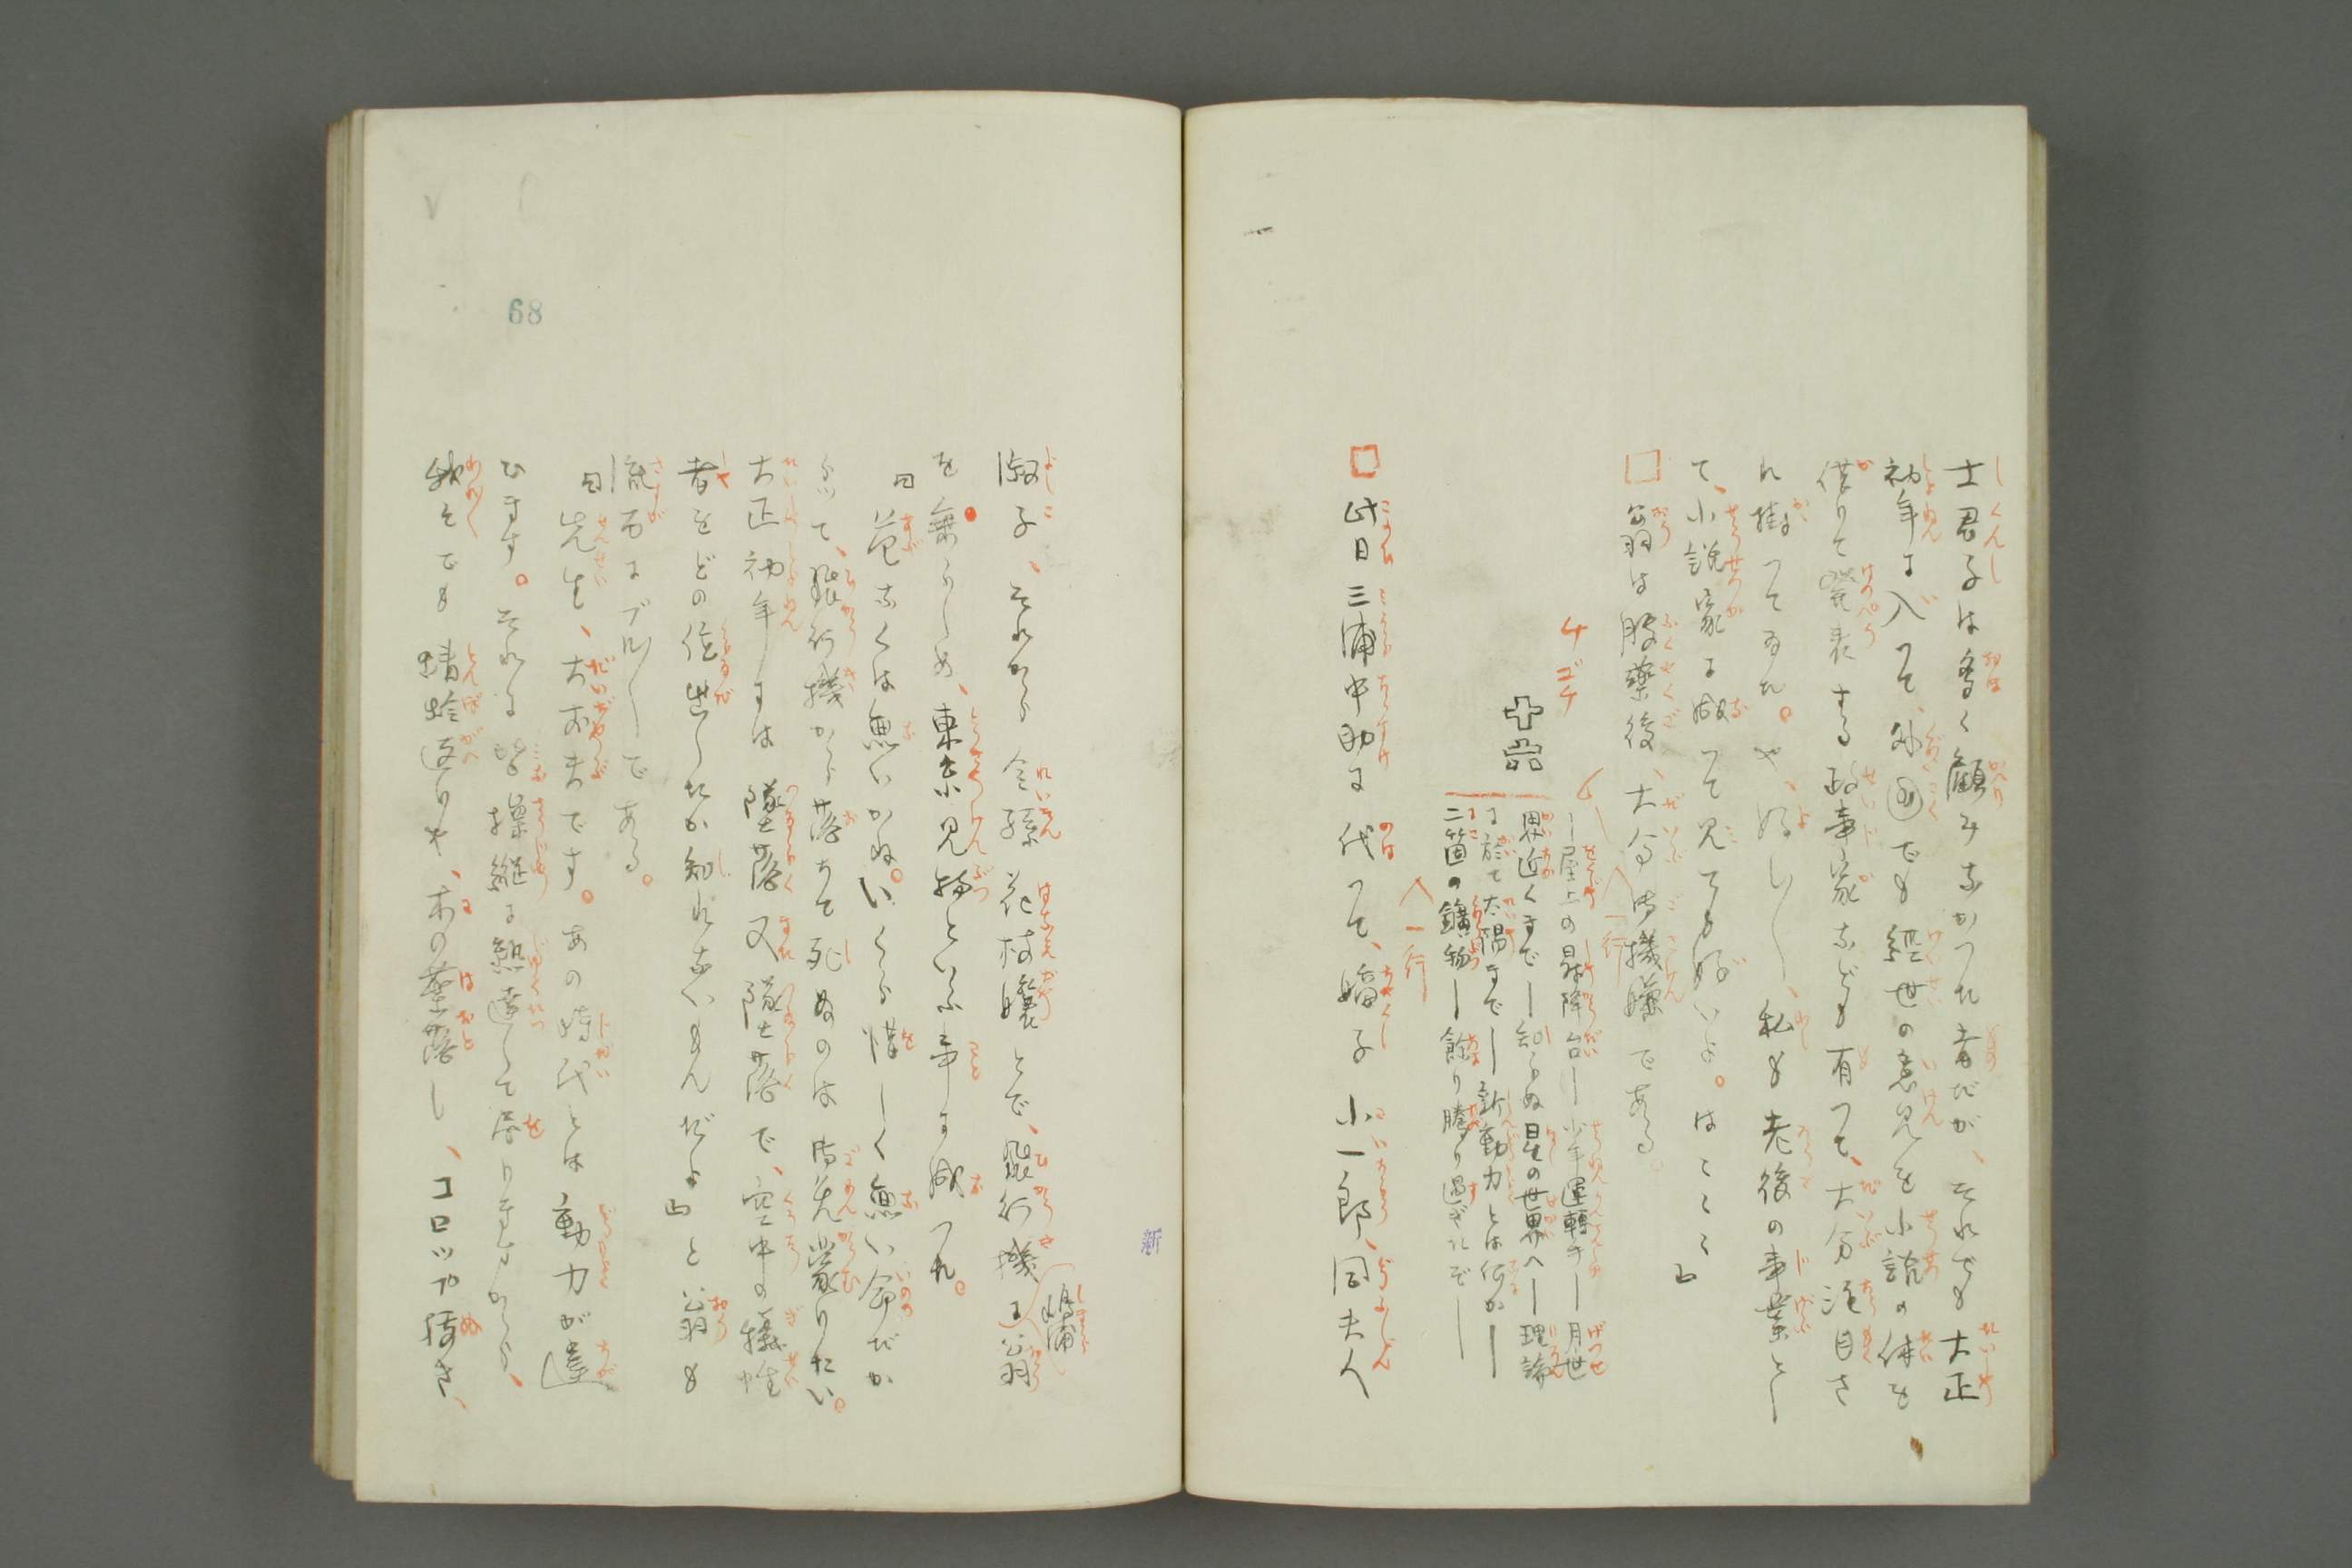 士君子は多く顧みなかつた者だが、それでも大正
初年に入つて、外国でも経世の意見を小説の体を
借りて発表する政事家なども有つて、大分注目さ
れ掛つてゐた。や、好し〱、私も老後の事業とし
て、小説家に成つて見ても好いよ。はゝゝ」
□翁は服薬後、大分御機嫌である。
四号
一行
―屋上の昇降台―少年運転手―月世
界近くまで―知らぬ星の世界へ―理論
に於て太陽まで―新動力とは何か―
二箇の鑛物―餘り騰り過ぎたぞ―
一行
□此日三浦中助に代つて、嬌子小一郎、同夫人
淑子、それから令孫花枝嬢とで、飛行機に嶋浦翁
を乗らしめ、東京見物といふ事に成つた。
「危なくは無いかね。いくら惜しく無い命だか
らつて、飛行機から落ちて死ぬのは御免蒙りたい。
大正初年には墜落又墜落で、空中の犠牲
者をどの位出したか知れないもんだよ」と翁も
流石にブル〱である。
「先生、大丈夫です。あの時代とは動力が違
ひます。それに皆操縦に熟達して居りますから、
我々でも蜻蛉返りや、木の葉落し、コロップ抜き、
68
新